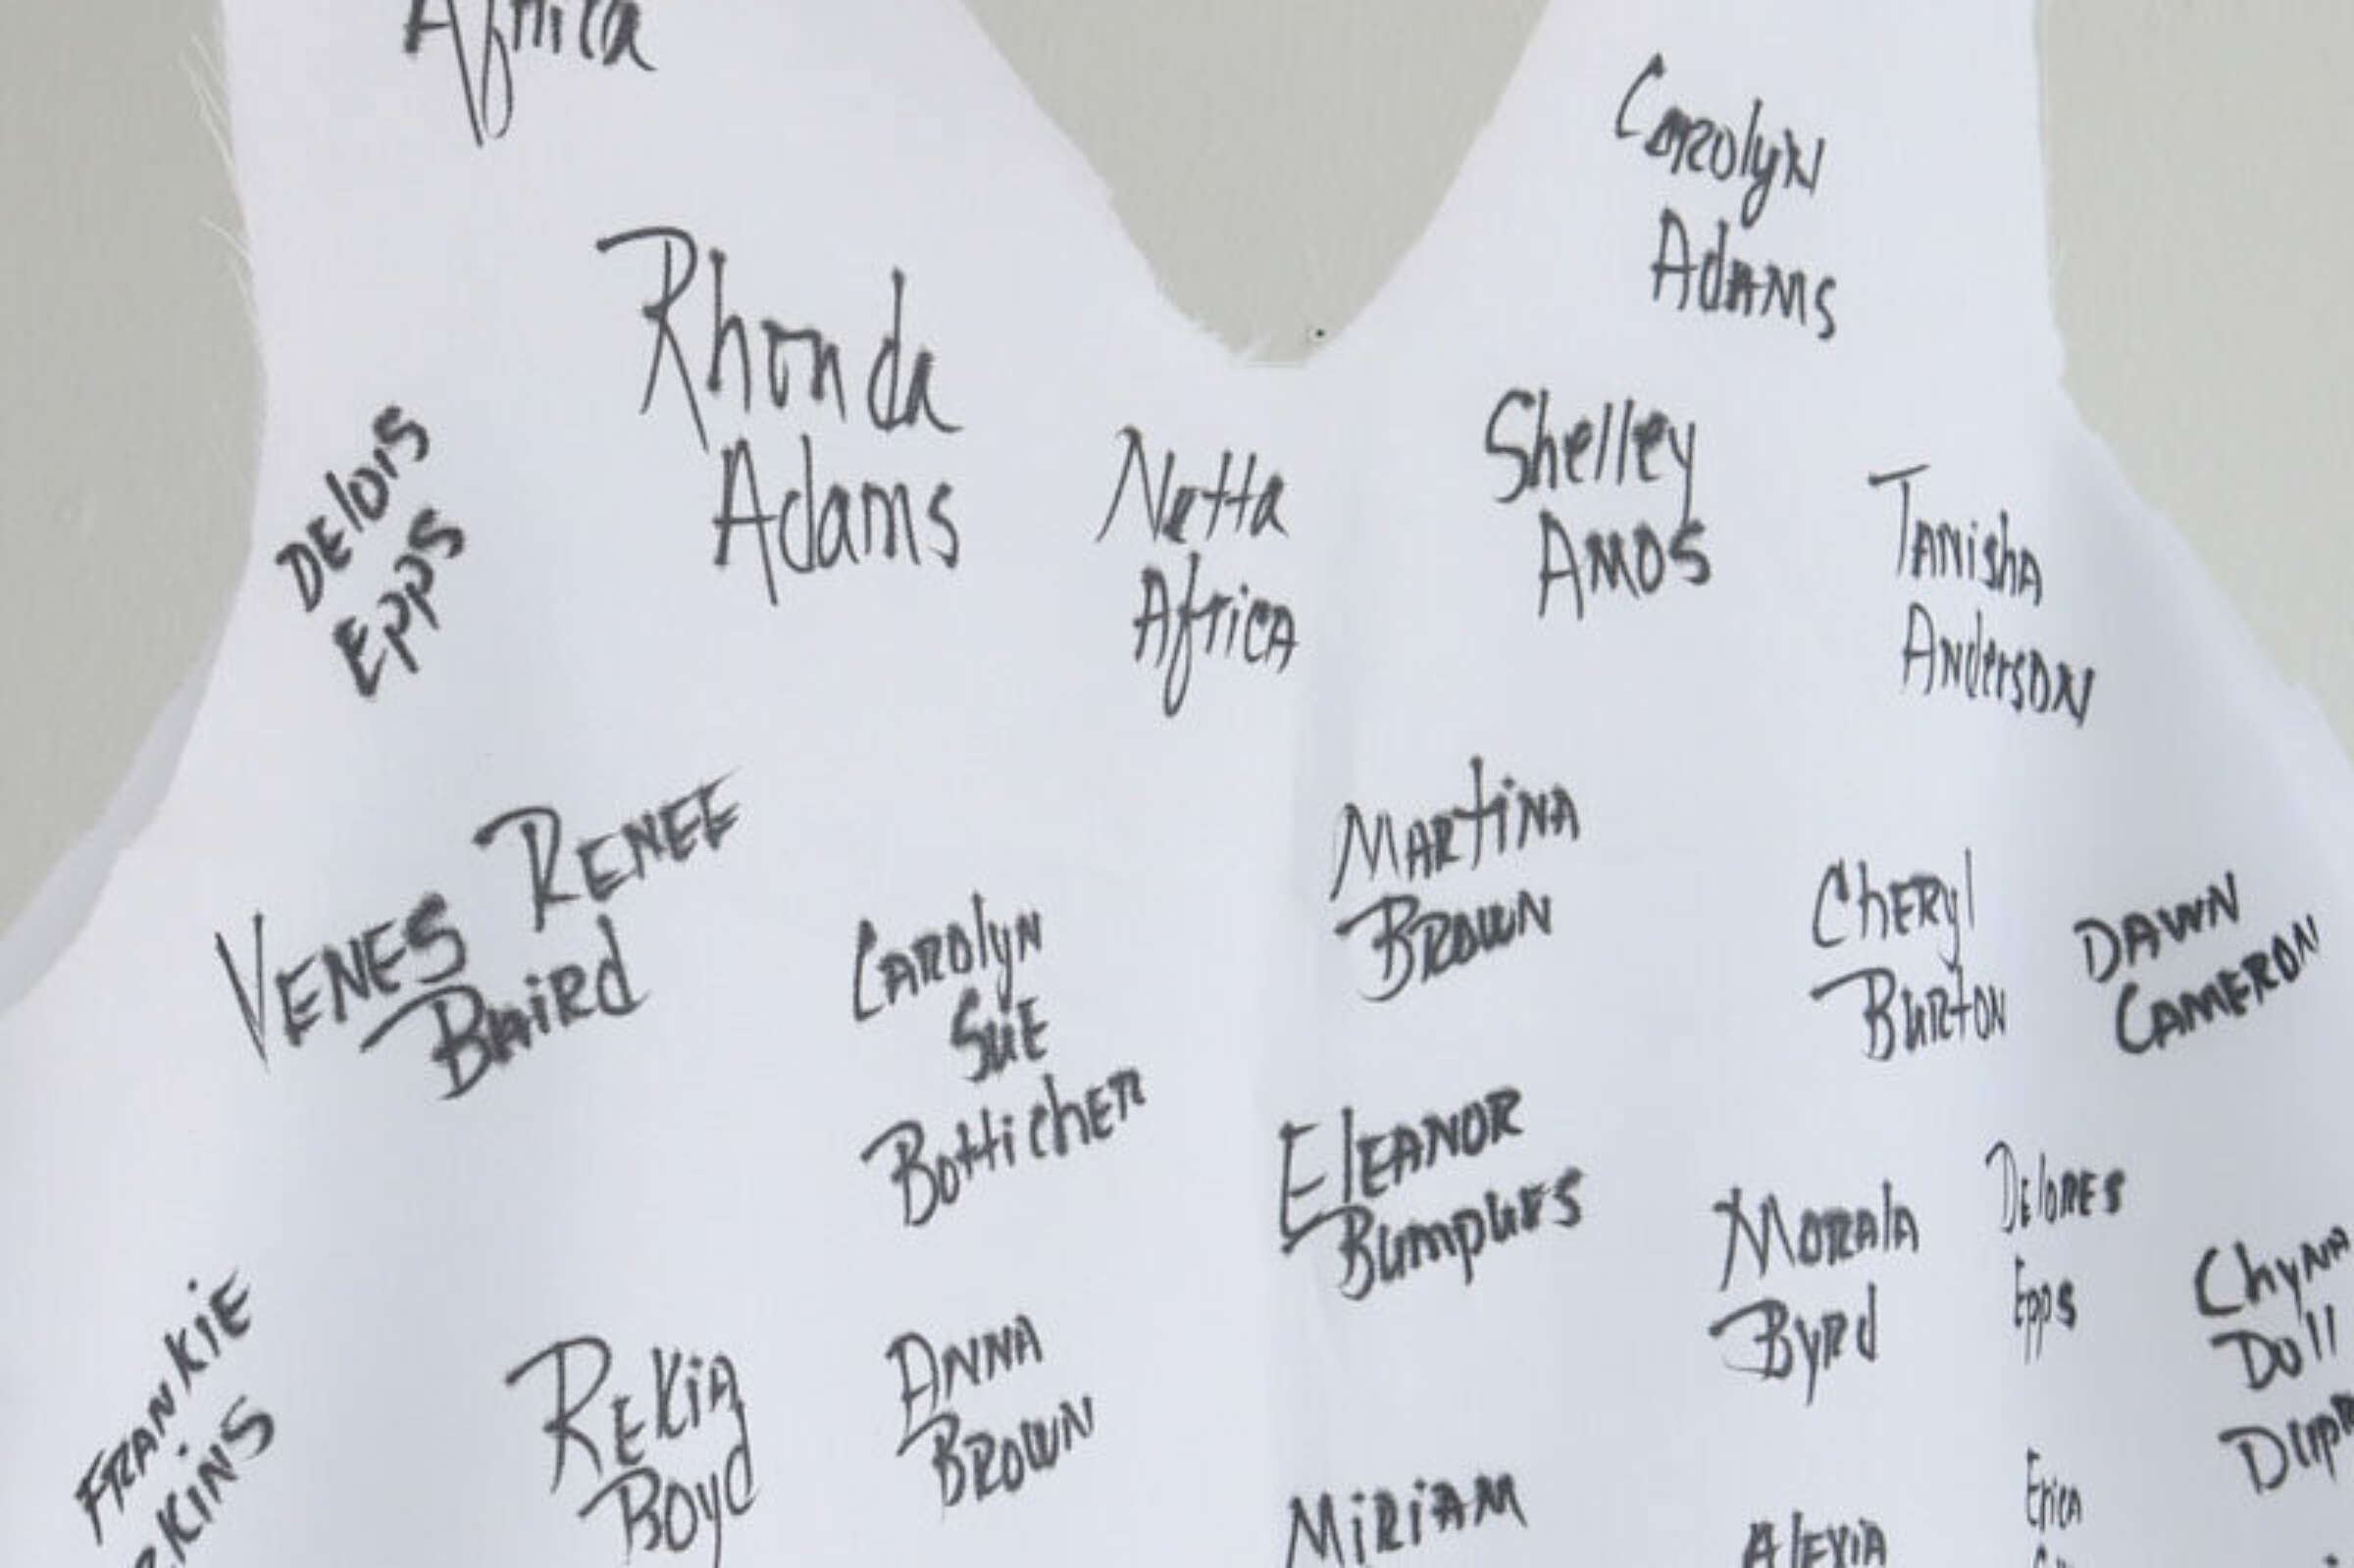 Africa
Carolyn
Adams
Rhonda
Adams
Delois
Epps
Netta
Africa
Shelley
Amos
Tanisha
Anderson
Venes Renee
Baird
Carolyn
Sue
Botticher
Martina
Brown
Cheryl
Burton
Dawn
Cameron
Eleanor
Bumpues
Morala
Byrd
Delores
Epps
Chyna
Doll
Frankie
Rekia
Boyd
Anna
Brown
Miriam
Alexia
Erica